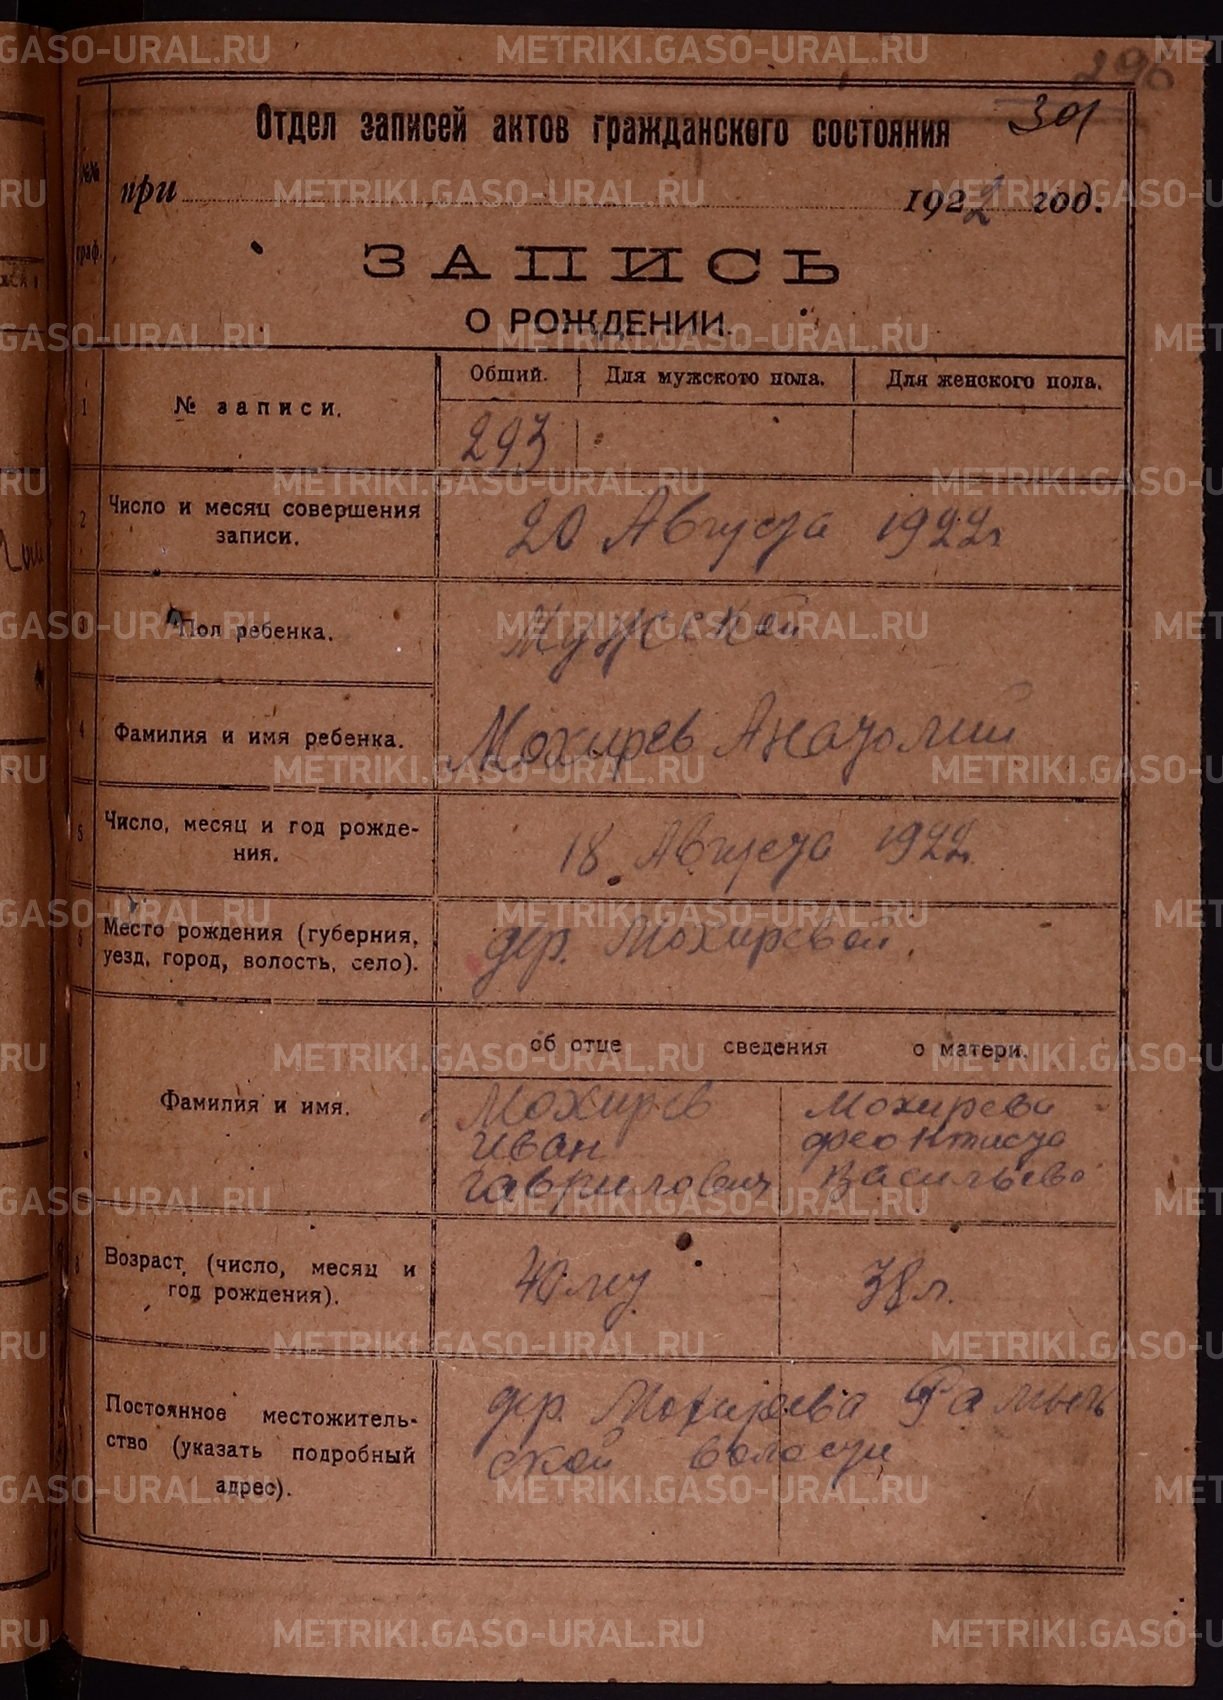 296
301
Отдел записей актов гражданского состояния
№№ граф.
при 1922 год.
ЗАПИСЬ
О РОЖДЕНИИ.
1 № записи. Общий. Для мужского пола. Для женского пола.
293
2 Число и месяц совершения записи. 20 Августа 1922 г
3 Пол ребенка. Мужской
4 Фамилия и имя ребенка. Мохирев Анатолий
5 Число, месяц и год рождения. 18 Августа 1922 г.
6 Место рождения (губерния, уезд, город, волость, село). дер. Мохиревой.
об отце сведения о матери.
7 Фамилия и имя. Мохирев Мохирева
Иван Феоктиста
Гаврилович Васильева
8 Возраст (число, месяц и год рождения). 40 лет 38 л.
Постоянное местожительство (указать подробный адрес). дер. Мохирева
ской волости
METRIKI.GASO-URAL.RU